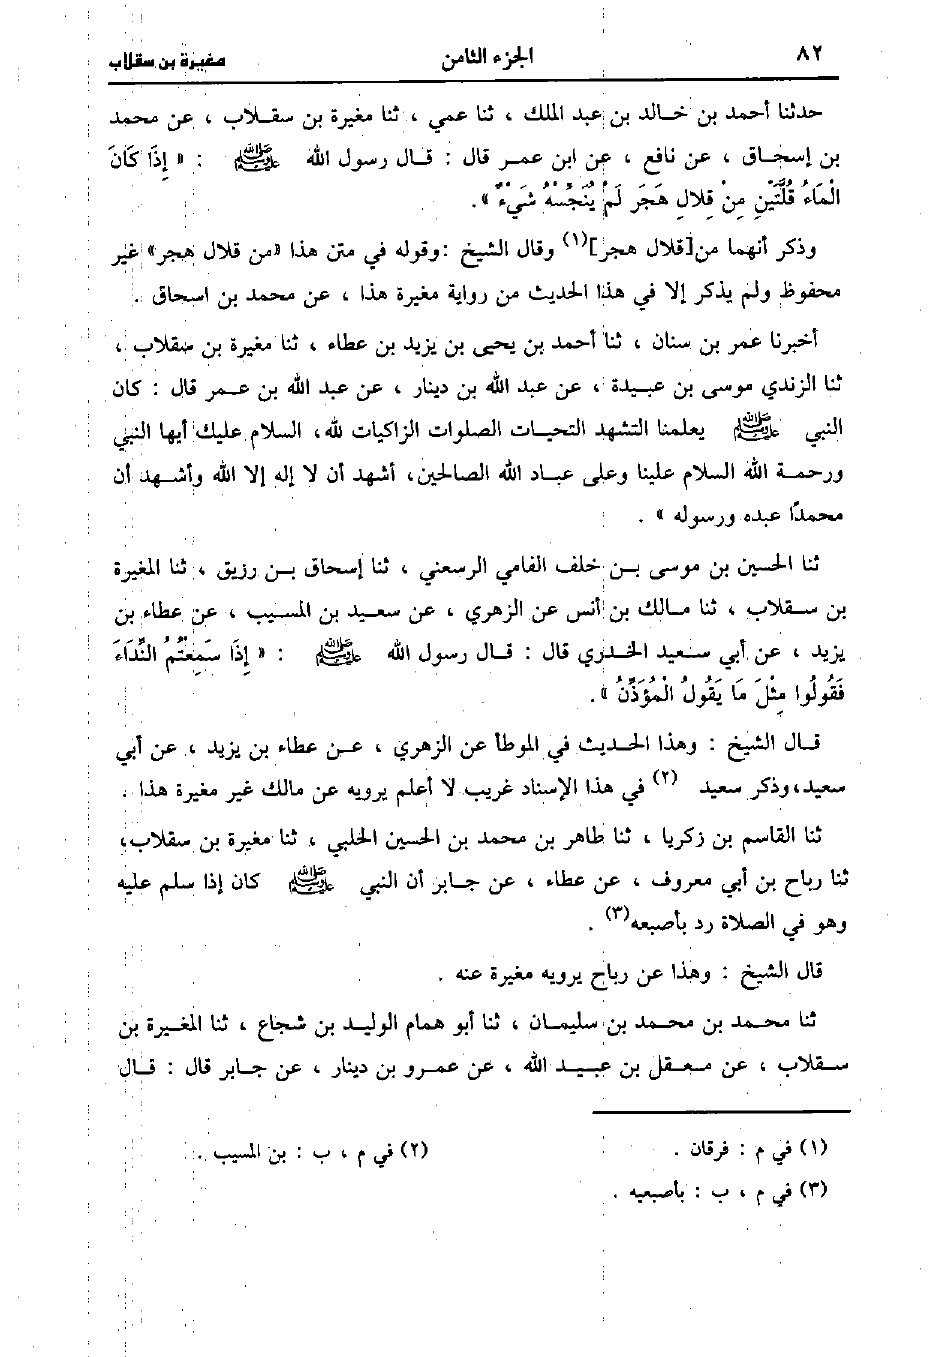 ٨٢ الجزء الثامن مغيرة بن سقلاب
حدثنا أحمد بن خالد بن عبد الملك ، ثنا عمي ، ثنا مغيرة بن سقلاب ، عن محمد
بن إسحاق ، عن نافع ، عن ابن عمر قال : قال رسول الله ﷺ : « إِذَا كَانَ
الْمَاءُ قُلَّتَيْنِ مِنْ قِلالِ هَجَرَ لَمْ يُنَجِّسْهُ شَيْءٌ ».
وذكر أنهما من[قلال هجر](١) وقال الشيخ :وقوله في متن هذا «من قلال هجر» غير
محفوظ ولم يذكر إلا في هذا الحديث من رواية مغيرة هذا ، عن محمد بن اسحاق .
أخبرنا عمر بن سنان ، ثنا أحمد بن يحيى بن يزيد بن عطاء ، ثنا مغيرة بن سقلاب ،
ثنا الزندي موسى بن عبيدة ، عن عبد الله بن دينار ، عن عبد الله بن عمر قال : كان
النبي ﷺ يعلمنا التشهد التحيات الصلوات الزاكيات لله، السلام عليك أيها النبي
ورحمة الله السلام علينا وعلى عباد الله الصالحين، أشهد أن لا إله إلا الله وأشهد أن
محمدًا عبده ورسوله » .
ثنا الحسين بن موسى بن خلف الفامي الرسعني ، ثنا إسحاق بن رزيق ، ثنا المغيرة
بن سقلاب ، ثنا مالك بن أنس عن الزهري ، عن سعيد بن المسيب ، عن عطاء بن
يزيد ، عن أبي سعيد الخدري قال : قال رسول الله ﷺ : « إِذَا سَمِعْتُمُ النِّدَاءَ
فَقُولُوا مِثْلَ مَا يَقُولُ الْمُؤَذِّنُ ».
قال الشيخ : وهذا الحديث في الموطأ عن الزهري ، عن عطاء بن يزيد ، عن أبي
سعيد، وذكر سعيد (٢) في هذا الإسناد غريب لا أعلم يرويه عن مالك غير مغيرة هذا .
ثنا القاسم بن زكريا ، ثنا طاهر بن محمد بن الحسين الحلبي ، ثنا مغيرة بن سقلاب،
ثنا رباح بن أبي معروف ، عن عطاء ، عن جابر أن النبي ﷺ كان إذا سلم عليه
وهو في الصلاة رد بأصبعه(٣) .
قال الشيخ : وهذا عن رباح يرويه مغيرة عنه .
ثنا محمد بن محمد بن سليمان ، ثنا أبو همام الوليد بن شجاع ، ثنا المغيرة بن
سقلاب ، عن معقل بن عبيد الله ، عن عمرو بن دينار ، عن جابر قال : قال
(١) في م : فرقان . (٢) في م ، ب : بن المسيب .
(٣) في م ، ب : بأصبعيه .